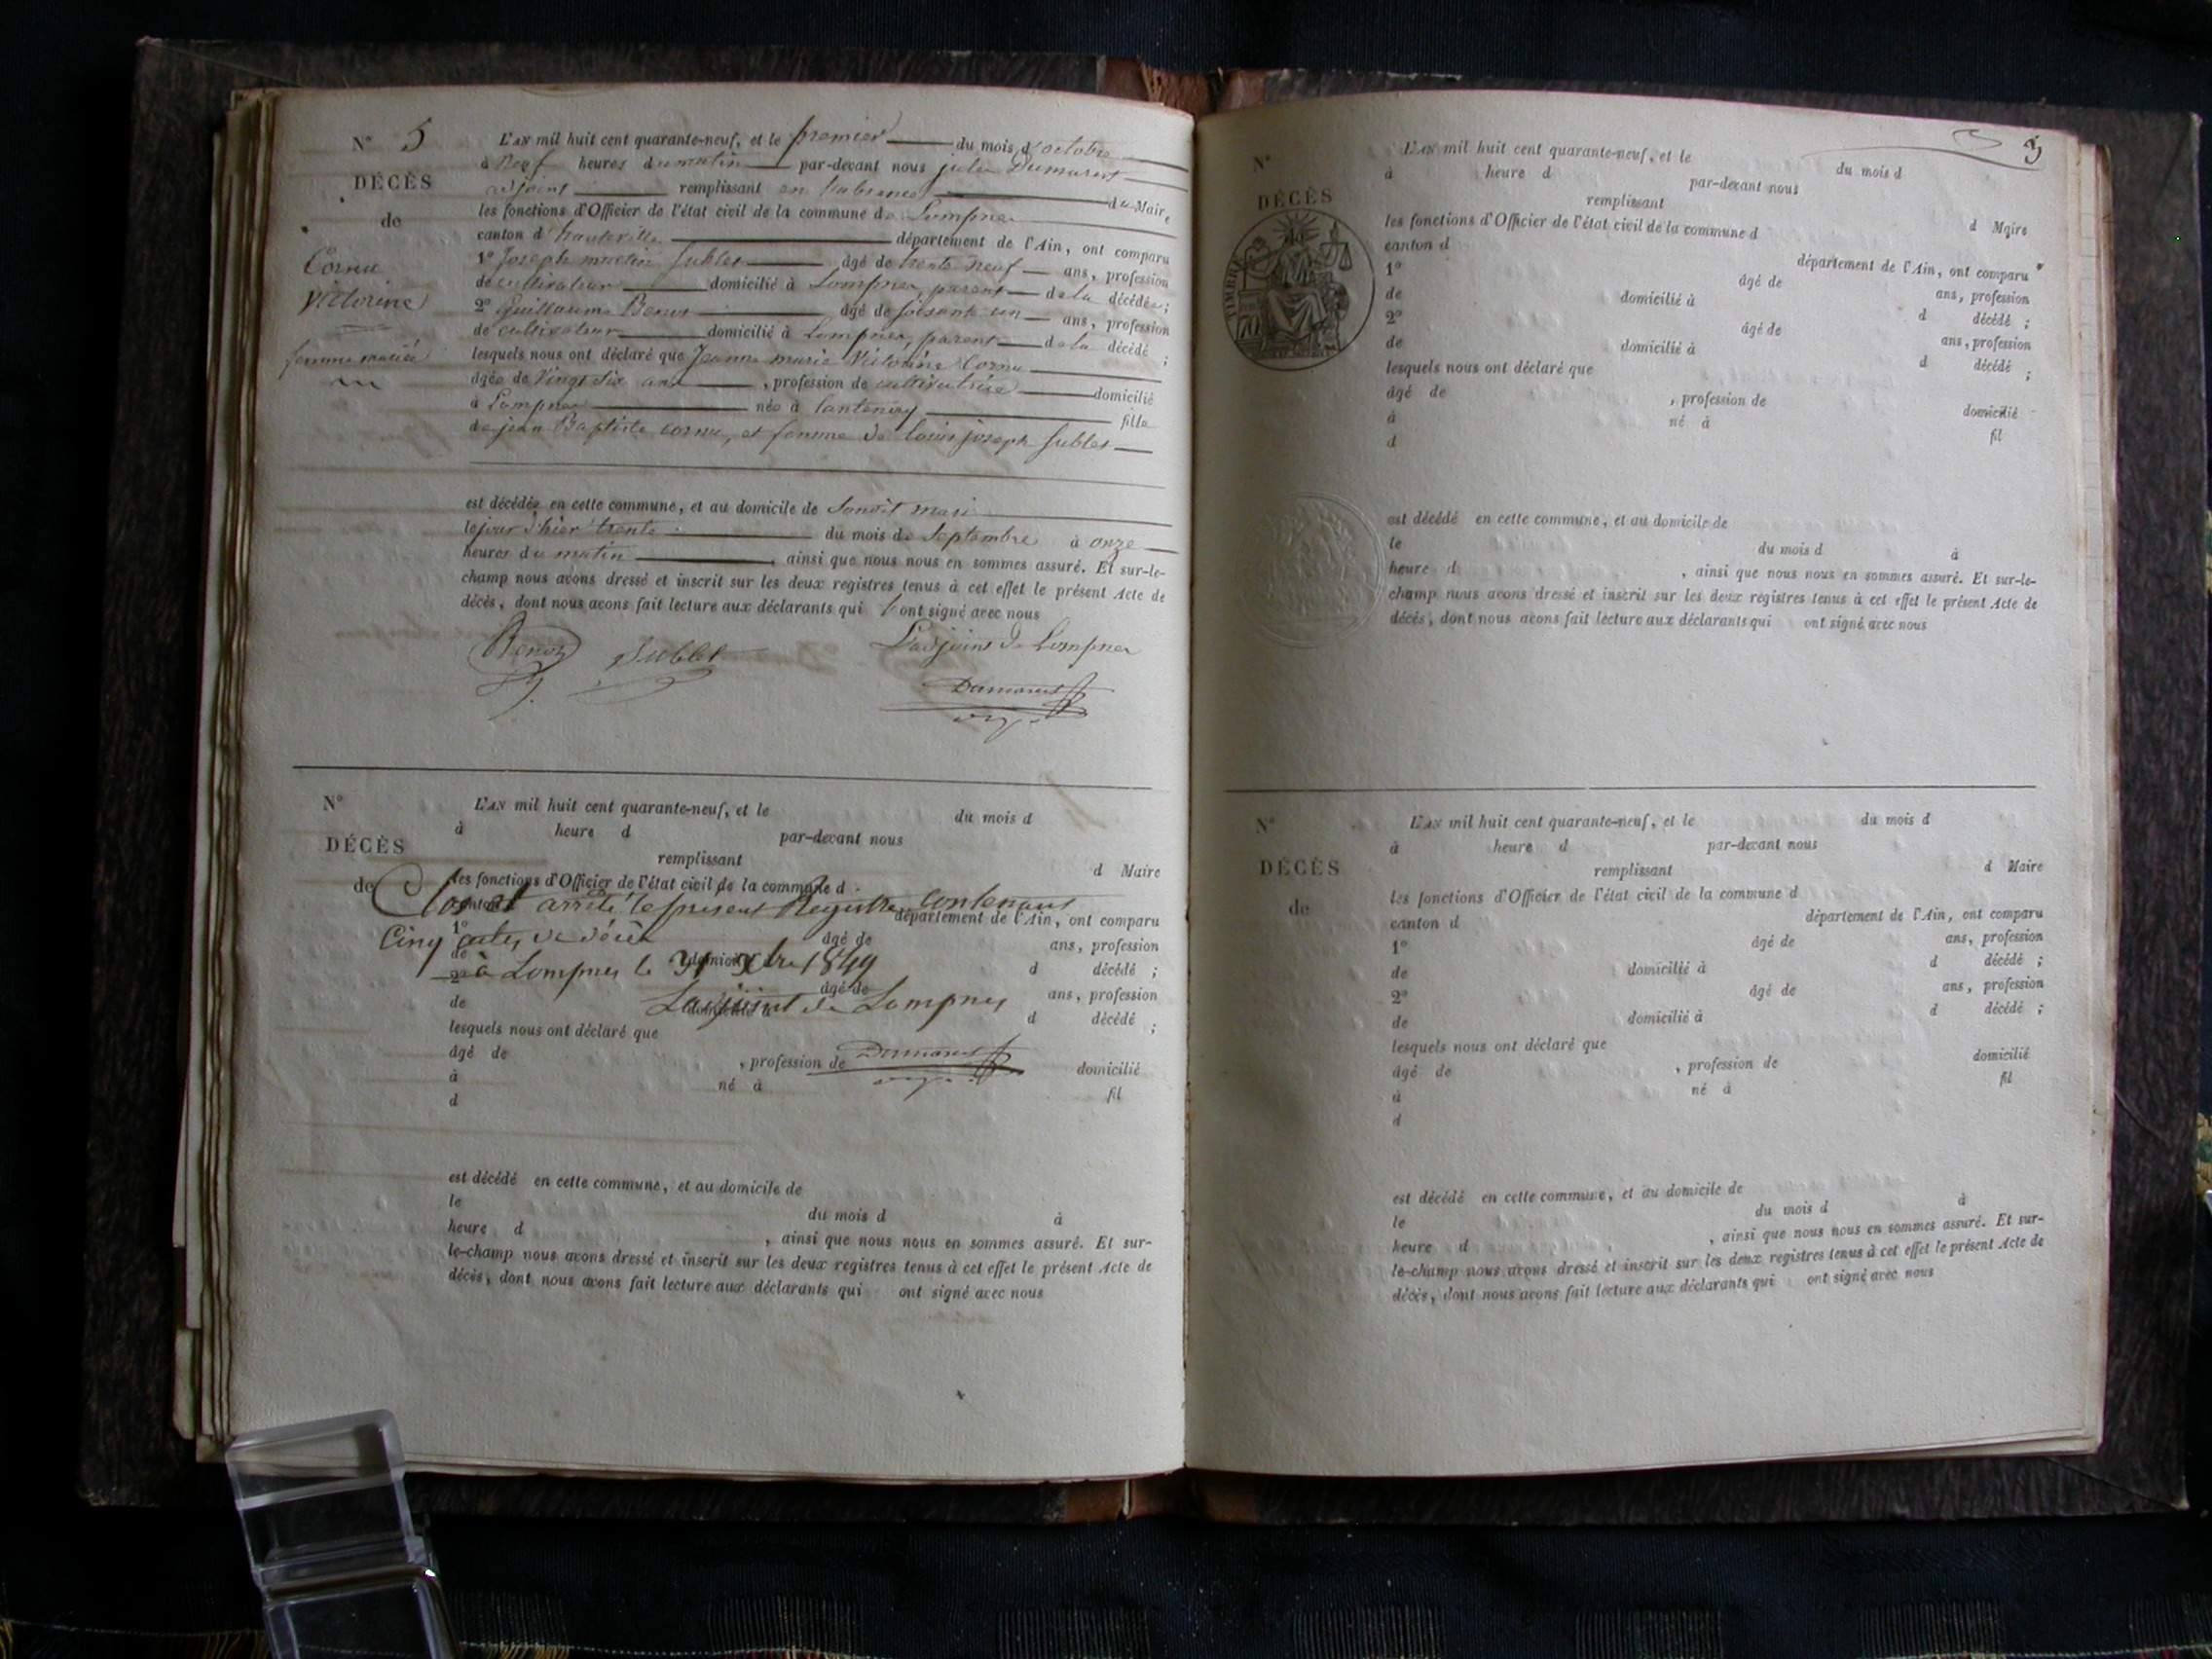 N° 5
DÉCÈS
de
Cornu
Victorine
femme mariée
L'AN mil huit cent quarante-neuf, et le premier du mois d'octobre
à neuf heures du matin par-devant nous julien Dumarest
adjoint remplissant en l'absence du Maire
les fonctions d'Officier de l'état civil de la commune de Lompnes
canton d'hauteville département de l'Ain, ont comparu
1° Joseph martin Sublet âgé de trente neuf ans, profession
de cultivateur domicilié à Lompnes, parent de la décédée ;
2° Guillaume Benoz âgé de soisante un ans, profession
de cultivateur domicilié à Lompnes, parent de la décédé ;
lesquels nous ont déclaré que Jeanne marie Victorine Cornu
âgée de Vingt six ans, profession de cultivatrice domicilié
à Lompnes née à lantenay fille
de jean Baptiste cornu, et femme de louis joseph Sublet
est décédée en cette commune, et au domicile de sondit mari
le jour d'hier trente du mois de Septembre à onze
heures du matin, ainsi que nous nous en sommes assuré. Et sur-le-
champ nous avons dressé et inscrit sur les deux registres tenus à cet effet le présent Acte de
décès, dont nous avons fait lecture aux déclarants qui l'ont signé avec nous
Benoz Sublet L'adjoint de Lompnes
Dumarest
N°
DÉCÈS
de
L'AN mil huit cent quarante-neuf, et le du mois d
à heure d par-devant nous
remplissant d Maire
les fonctions d'Officier de l'état civil de la commune d
Clos et arrêté le présent Registre contenant
département de l'Ain, ont comparu
Cinq actes de décès
1° âgé de ans, profession
de d décédé ;
à Lompnes le 31 Xbre 1849
2° âgé de ans, profession
L'adjoint de Lompnes
de d décédé ;
lesquels nous ont déclaré que
Dumarest
âgé de , profession de domicilié
à né à fil
d
est décédé en cette commune, et au domicile de
le du mois d à
heure d , ainsi que nous nous en sommes assuré. Et sur-
le-champ nous avons dressé et inscrit sur les deux registres tenus à cet effet le présent Acte de
décès, dont nous avons fait lecture aux déclarants qui ont signé avec nous
3
N°
DÉCÈS
TIMBRE
70
L'AN mil huit cent quarante-neuf, et le du mois d
à heure d par-devant nous
remplissant d Maire
les fonctions d'Officier de l'état civil de la commune d
canton d département de l'Ain, ont comparu
1° âgé de ans, profession
de domicilié à d décédé ;
2° âgé de ans, profession
de domicilié à d décédé ;
lesquels nous ont déclaré que
âgé de , profession de domicilié
à né à fil
d
est décédé en cette commune, et au domicile de
le du mois d à
heure d , ainsi que nous nous en sommes assuré. Et sur-le-
champ nous avons dressé et inscrit sur les deux registres tenus à cet effet le présent Acte de
décès, dont nous avons fait lecture aux déclarants qui ont signé avec nous
N°
DÉCÈS
de
L'AN mil huit cent quarante-neuf, et le du mois d
à heure d par-devant nous
remplissant d Maire
les fonctions d'Officier de l'état civil de la commune d
canton d département de l'Ain, ont comparu
1° âgé de ans, profession
de domicilié à d décédé ;
2° âgé de ans, profession
de domicilié à d décédé ;
lesquels nous ont déclaré que
âgé de , profession de domicilié
à né à fil
d
est décédé en cette commune, et au domicile de
le du mois d à
heure d , ainsi que nous nous en sommes assuré. Et sur-
le-champ nous avons dressé et inscrit sur les deux registres tenus à cet effet le présent Acte de
décès, dont nous avons fait lecture aux déclarants qui ont signé avec nous